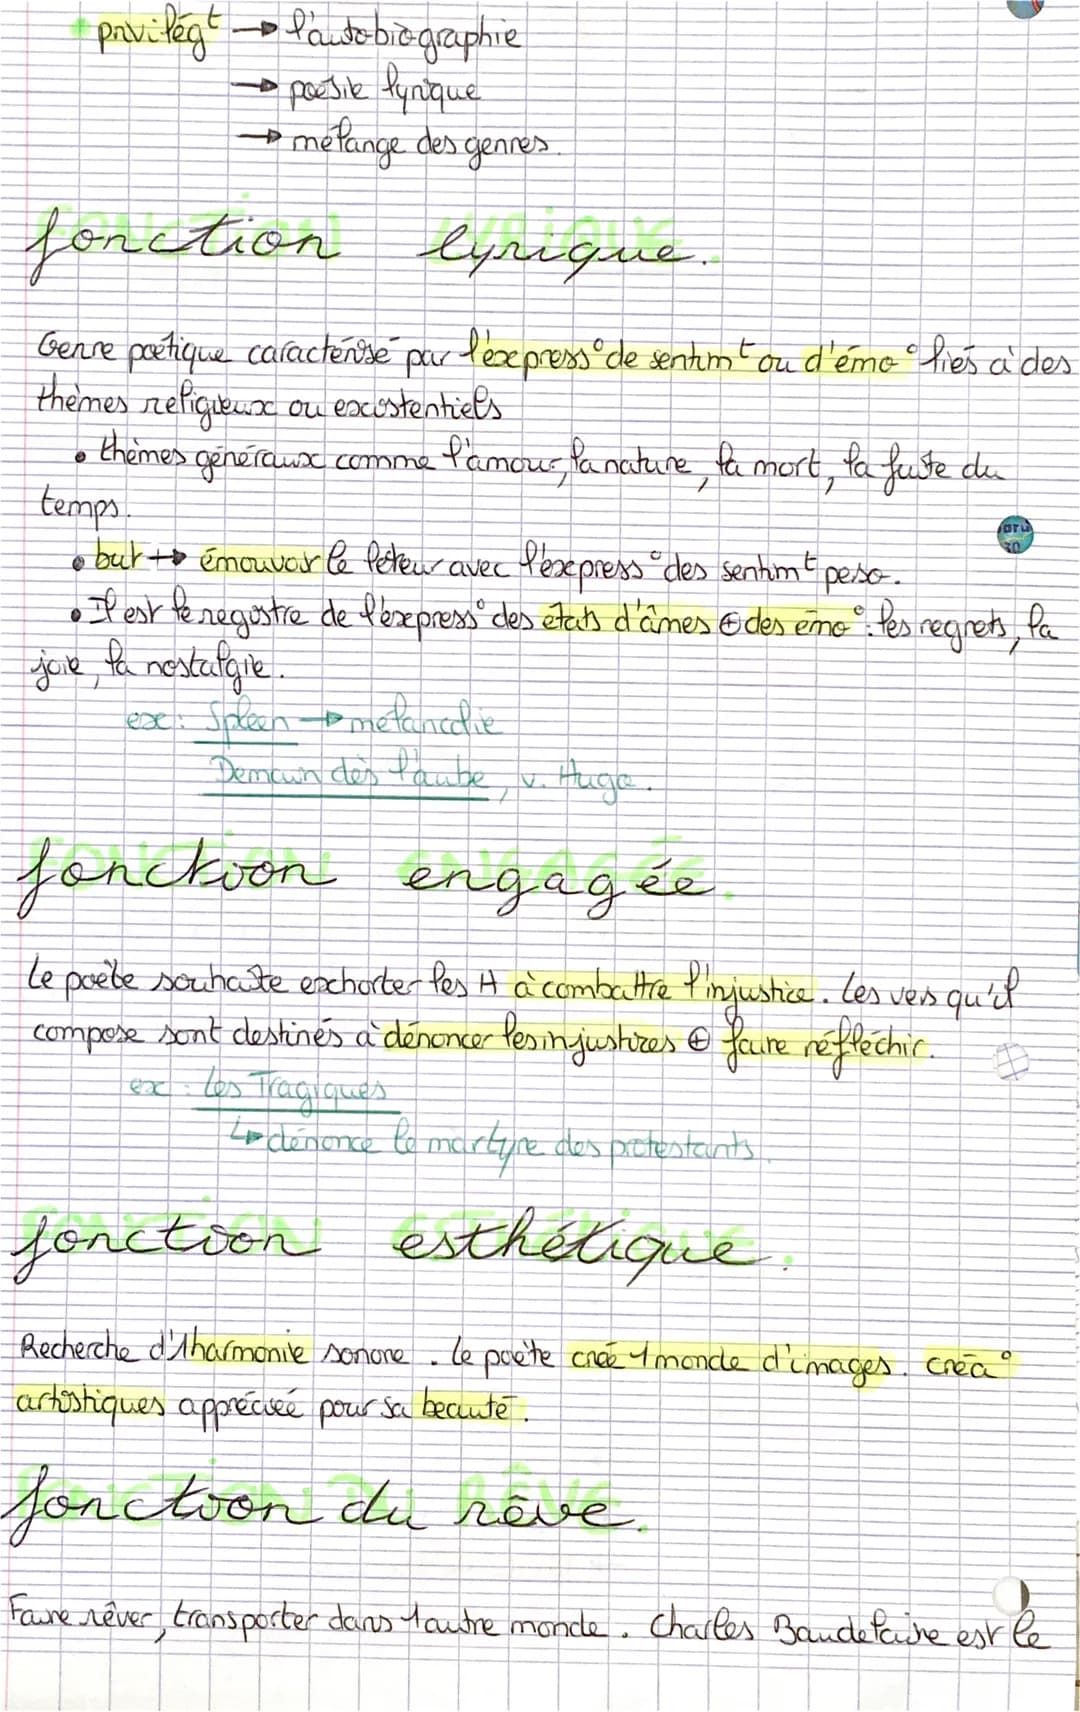 privilégt → l'autobiographie
→ poésie lyrique
→ mélange des genres.
fonction lyrique.
Genre poétique caractérisé par l'express° de sentimt ou d'émo° liés à des
thèmes religieux ou existentiels
• thèmes généraux comme l'amour, la nature, la mort, la fuite du
temps.
• but → émouvoir le léteur avec l'express° des sentimt peso.
• Il est le registre de l'express° des états d'âmes ⊕ des émo° : les regrets, la
joie, la nostalgie.
ex : Spleen → mélancolie
Demain dès l'aube, v. Hugo.
fonction engagée.
Le poète souhaite exchorter les H à combattre l'injustice. Les vers qu'il
compose sont destinés à dénoncer les injustices ⊕ faire réfléchir.
ex : Les Tragiques
↳ dénonce le martyre des protestants.
fonction esthétique.
Recherche d'1 harmonie sonore. Le poète crée 1 monde d'images. créa°
artistiques appréciée pour sa beauté.
fonction du rêve.
Faire rêver, transporter dans 1 autre monde. Charles Baudelaire est le